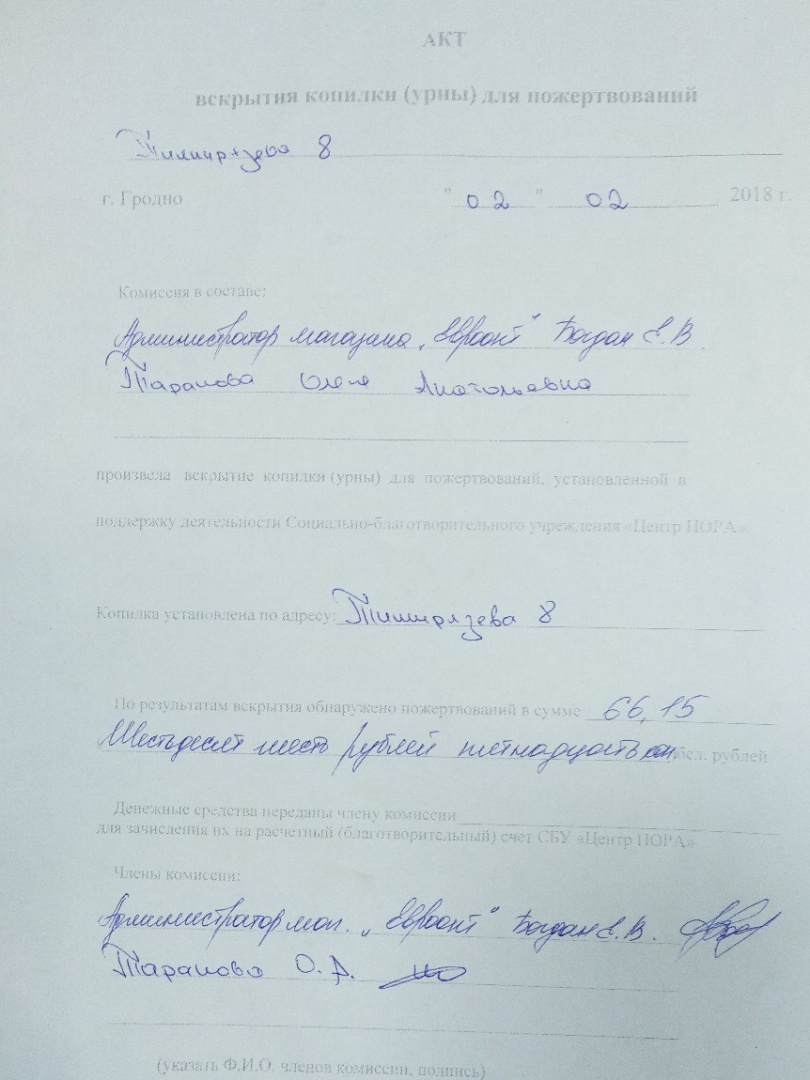 АКТ
вскрытия копилки (урны) для пожертвований
Тимирязева 8
г. Гродно "02" 02 2018 г.
Комиссия в составе:
Администратор магазина "Евроопт" Богдан Е.В.
Таранова Олеся Анатольевна
произвела вскрытие копилки (урны) для пожертвований, установленной в
поддержку деятельности Социально-благотворительного учреждения «Центр ПОРА»
Копилка установлена по адресу: Тимирязева 8
По результатам вскрытия обнаружено пожертвований в сумме 66,15
Шестьдесят шесть рублей пятнадцать коп бел. рублей
Денежные средства переданы члену комиссии
для зачисления их на расчетный (благотворительный) счет СБУ «Центр ПОРА»
Члены комиссии:
Администратор маг. "Евроопт" Богдан Е.В.
Таранова О.А.
(указать Ф.И.О. членов комиссии, подпись)